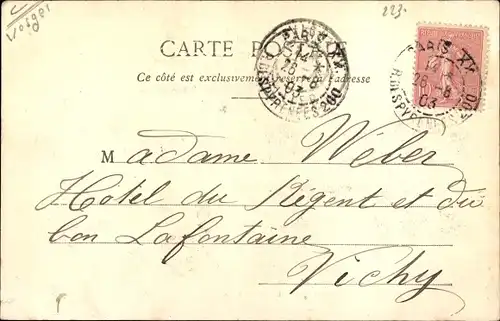 Vosges
223.
CARTE POSTALE
Ce côté est exclusivement réservé à l'adresse
PARIS XX
R. DES PYRENEES 200
PARIS XX
26 -8
03
R. DES PYRENEES 200
Madame Weber
Hôtel du Régent et du
bon Lafontaine
Vichy